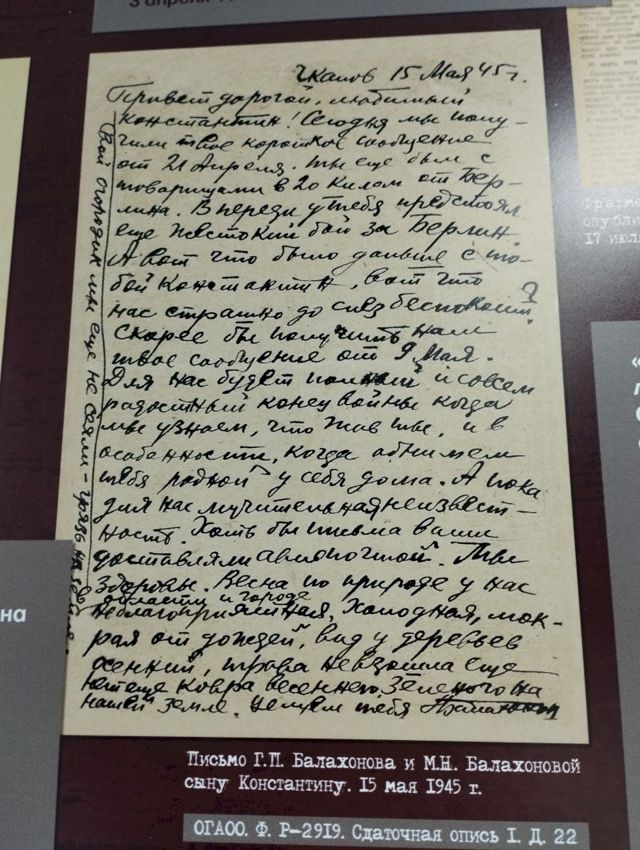 3 апреля
Чкалов 15 Мая 45 г.
Привет дорогой, любимый
Константин! Сегодня мы полу-
чили твое короткое сообщение
от 21 Апреля. Ты еще был с
товарищами в 20 килом от Бер-
лина. Впереди у тебя предстоял
еще жестокий бой за Берлин.
А вот что было дальше с то-
бой Константин, вот что
нас страшно до слез беспокоит?
Скорее бы получить нам
твое сообщение от 9 Мая.
Для нас будет полный и совсем
радостный конец войны когда
мы узнаем, что жив ты, и в
особенности, когда обнимем
тебя родной у себя дома. А пока
для нас мучительная неизвест-
ность. Хоть бы письма ваши
доставляли авиапочтой. Мы
здоровы. Весна по природе у нас
области и городе
неблагоприятная, холодная, мок-
рая от дождей, вид у деревьев
осенний, трава не взошла еще
нет еще ковра весеннего, зеленого на
нашей земле. Целуем тебя
огородик мы еще не сеяли - грязь на
Письмо Г.П. Балахонова и М.Н. Балахоновой
сыну Константину. 15 мая 1945 г.
ОГАОО. Ф. Р-2919. Сдаточная опись 1. Д. 22
на
Фрагме
опубли
17 июл